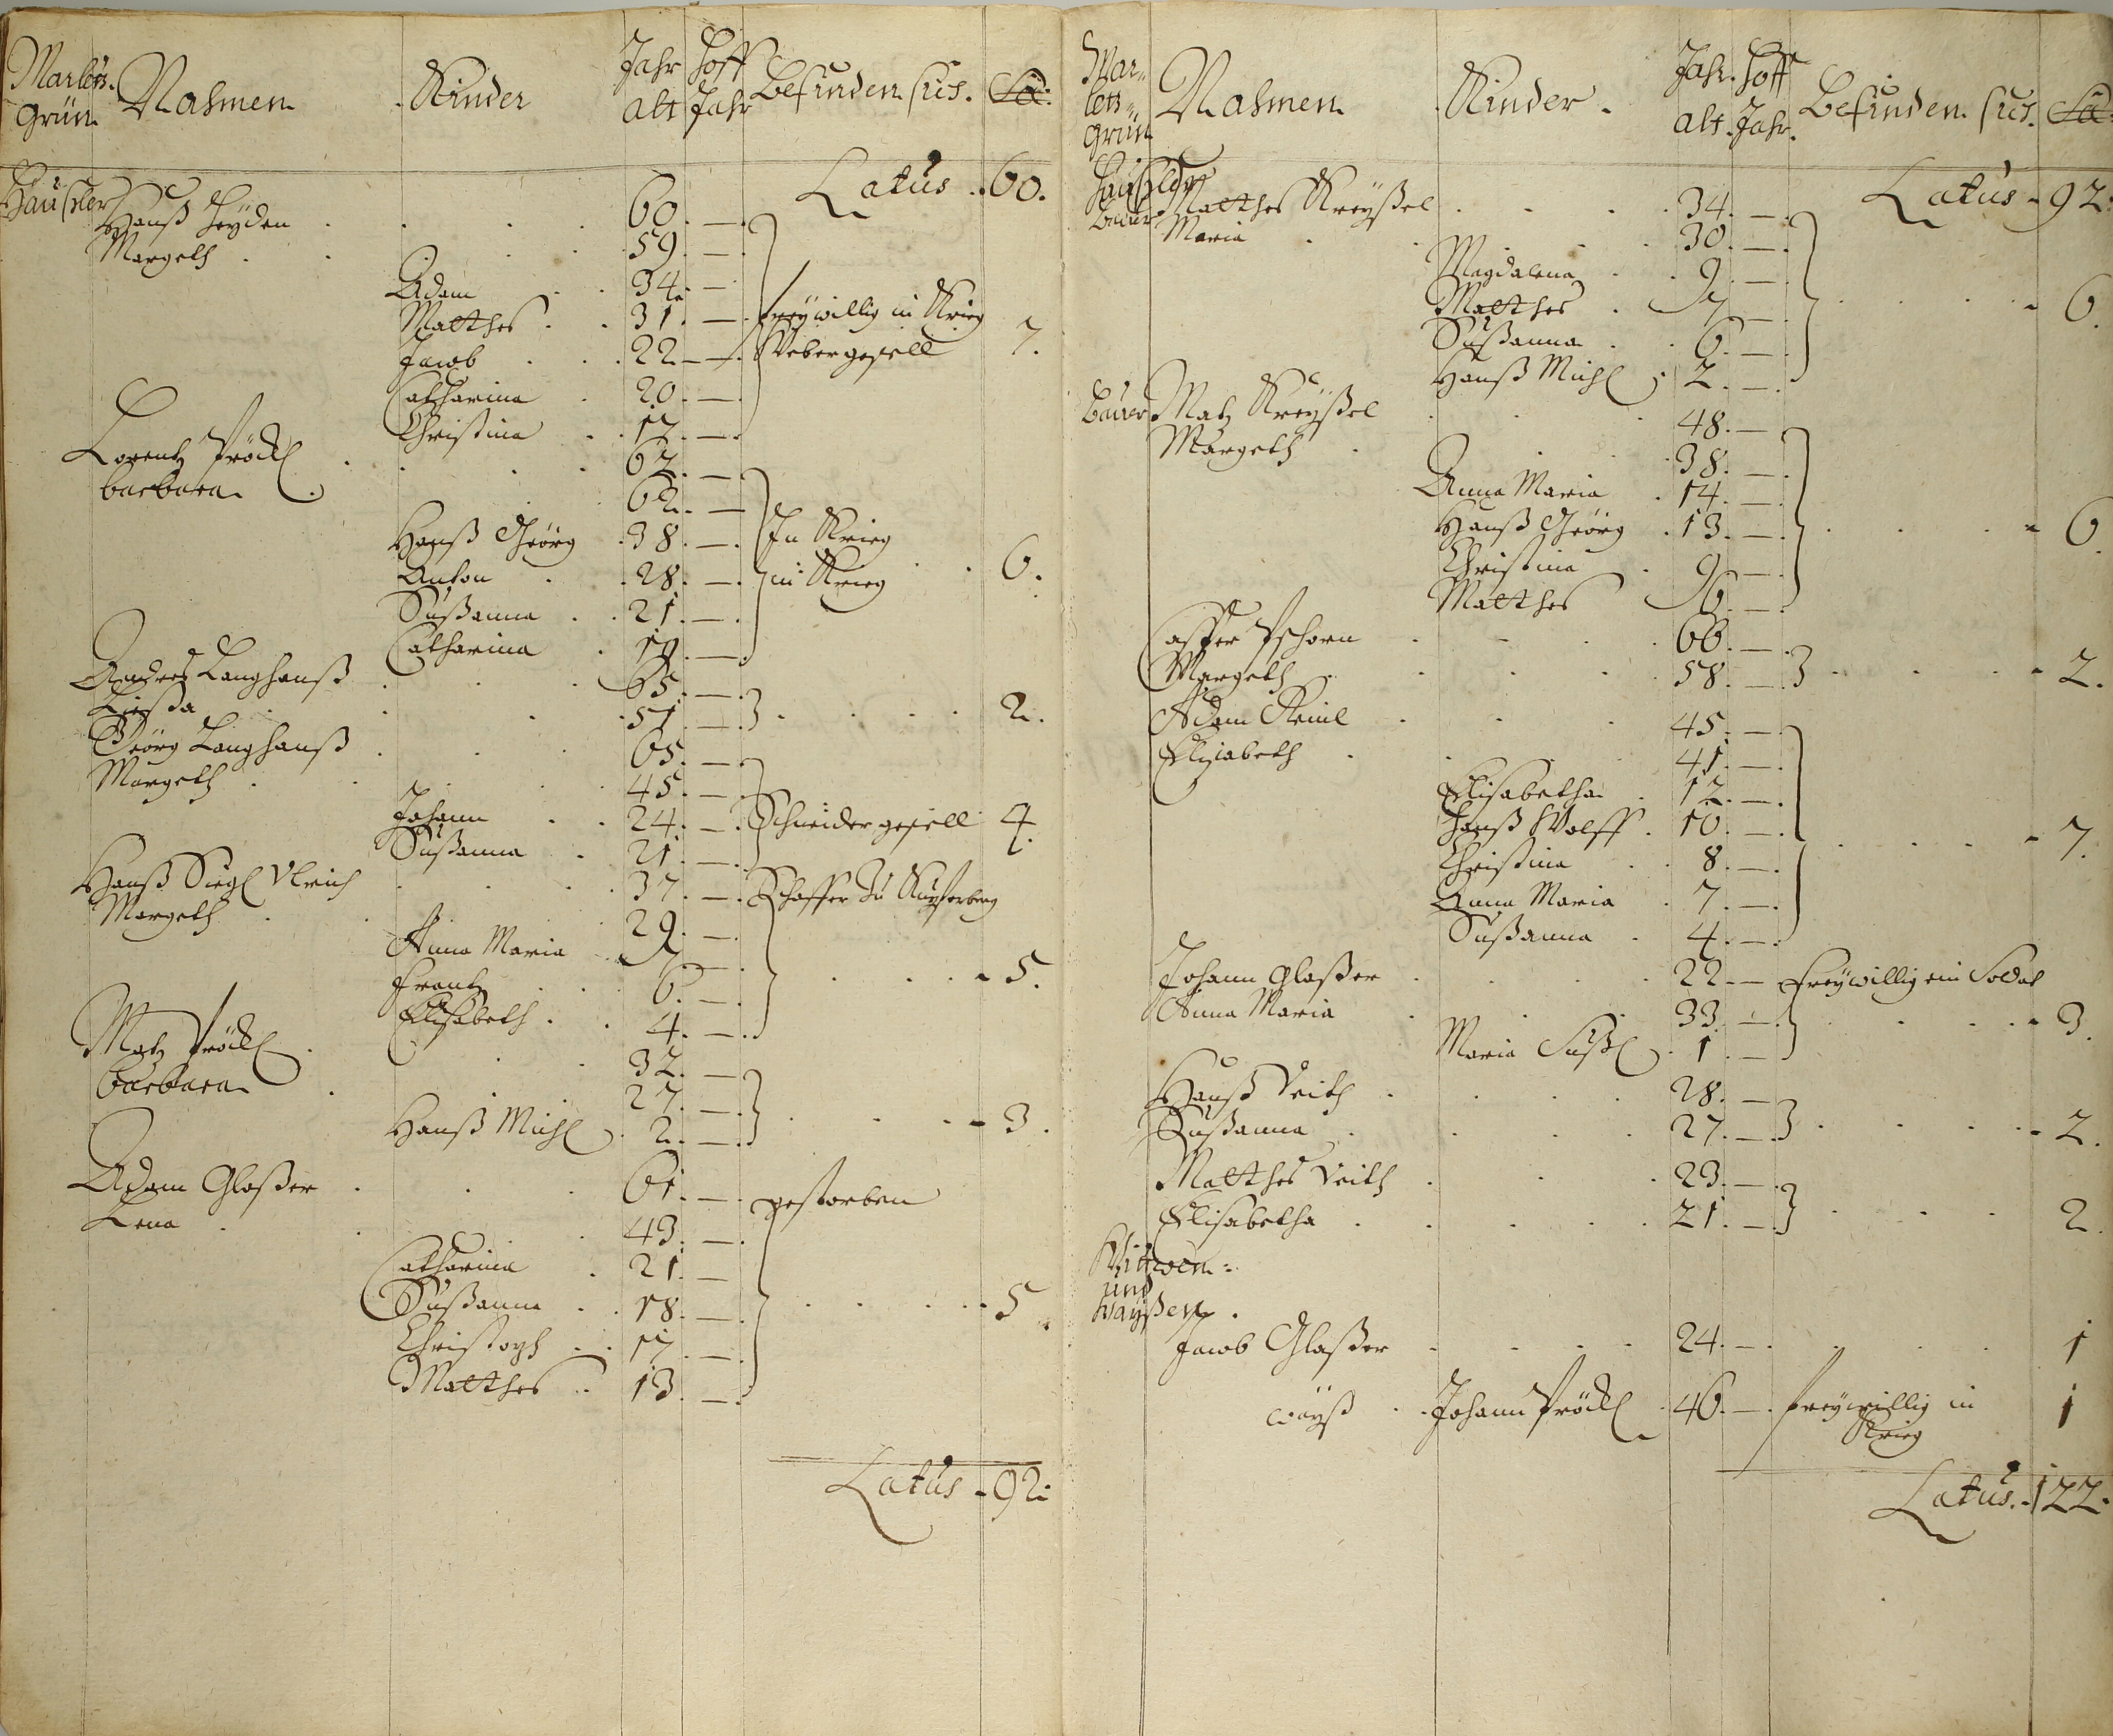 Marlets- Nahmen Kinder Jahr Hoff Befinden sich. Sa:
grün alt Jahr
Latus . 60.
Häußler
Hanß Heyden . . . 60. —.
Margeth . . . 59. —.
Adam . . 34. —
Matthes . . 31. —. freywillig in Krieg
Jacob . . 22. —. Webergesell 7.
Catharina . 20. —.
Christina . . 17. —.
Lorentz Pröckl . . . 62. —.
barbara . 62. —
Hanß Geörg . 38. —. In Krieg
Anton . . 28. —. in Krieg . . 6.
Sußanna . . 21. —.
Catharina . 19. —.
Andres Langhanß . . . 65. —.
Liesßa . . . 51. —. . . . . 2.
Geörg Langhanß . . . 65. —.
Margeth . . . 45. —.
Johann . . 24. —. Schneidergesell 4.
Sußanna . 21. —.
Hanß Siegl Ulrich . . . 37. —. Schaffer Zu
Margeth . . . 29. —.
Anna Maria . 9. —.
Frantz . . 6. —. . . . - 5.
Elisabeth . . 4. —.
Matz Pröckl . . . 32. —
barbara . . 27. —.
Hanß Michl . 2. —. . . - 3.
Adam Glaßer . . . 61. —. gestorben
Lena . . . 43. —.
Catharina . 21. —
Sußanna . . 18. —. . . . - 5.
Christoph . . 17. —.
Matthes . . 13. —.
Latus - 92.
Mar- Nahmen Kinder . Jahr. Hoff Befinden sich. Sa:
lets- alt. Jahr.
grün
Latus - 92.
Häußler
Bauer Matthes Kreyßel . . . 34. —.
Maria . . . 30. —.
Magdalena . . 9. —.
Matthes . 7. —. . . . - 6.
Sußanna . . 6. —.
Hanß Michl . 2. —.
Bauer Matz Kreyßel . . . 48. —.
Margeth . . . 38. —.
Anna Maria . 14. —.
Hanß Geörg . 13. —. . . . - 6.
Christina . 9. —.
Matthes . 6. —.
Casper Pschorn . . . 66. —.
Margeth . . . 58. —. . . . - 2.
Adam . . . 45. —.
Elisabeth . . . 41. —.
Elisabetha . 12. —.
Hanß Wolff . 10. —.
Christina . . 8. —. . . . - 7.
Anna Maria . 7. —.
Sußanna . 4. —.
Johann Glaßer . . . 22. — freywillig ein Soldat
Anna Maria . . . 33. —. . . . - 3.
Maria Sußl . 1. —
Hanß Veith . . . 28. —
Sußanna . . . 27. —. . . . - 2.
Matthes Veith . . . 23. —.
Elisabetha . . . 21. —. . . . 2.
Wittwen =
und
Waysen .
Jacob Glaßer . . . 24. —. . . . 1
Wayß . . Johann Pröckl . 46. —. freywillig in 1
Krieg
Latus. - 122.